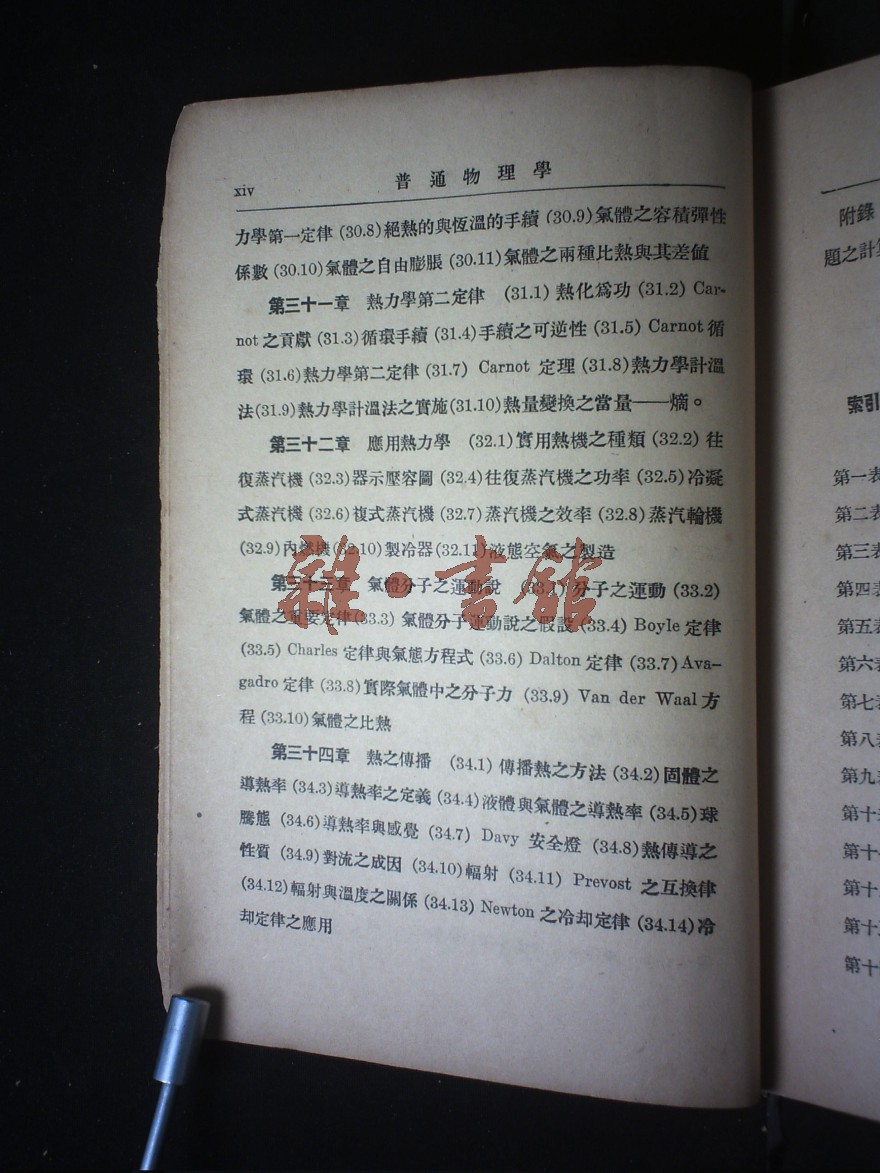 xiv
普通物理學
力學第一定律 (30.8)絕熱的與恆溫的手續 (30.9)氣體之容積彈性
係數 (30.10)氣體之自由膨脹 (30.11)氣體之兩種比熱與其差値
第三十一章 熱力學第二定律 (31.1) 熱化爲功 (31.2) Car-
not之貢獻 (31.3)循環手續 (31.4)手續之可逆性 (31.5) Carnot循
環 (31.6)熱力學第二定律 (31.7) Carnot 定理 (31.8)熱力學計溫
法(31.9)熱力學計溫法之實施(31.10)熱量變換之當量——熵。
第三十二章 應用熱力學 (32.1)實用熱機之種類 (32.2) 往
復蒸汽機 (32.3)器示壓容圖 (32.4)往復蒸汽機之功率 (32.5)冷凝
式蒸汽機 (32.6)複式蒸汽機 (32.7)蒸汽機之效率 (32.8)蒸汽輪機
(32.9)內燃機(32.10)製冷器(32.11)液態空氣之製造
第三十三章 氣體分子之運動說 (33.1)分子之運動 (33.2)
氣體之重要定律(33.3) 氣體分子運動說之假設 (33.4) Boyle 定律
(33.5) Charles 定律與氣態方程式 (33.6) Dalton 定律 (33.7)Ava-
gadro定律 (33.8)實際氣體中之分子力 (33.9) Van der Waal方
程 (33.10)氣體之比熱
第三十四章 熱之傳播 (34.1) 傳播熱之方法 (34.2)固體之
導熱率 (34.3)導熱率之定義 (34.4)液體與氣體之導熱率 (34.5)球
騰態 (34.6)導熱率與感覺 (34.7) Davy 安全燈 (34.8)熱傳導之
性質 (34.9)對流之成因 (34.10)輻射 (34.11) Prevost 之互換律
(34.12)輻射與溫度之關係 (34.13) Newton 之冷却定律 (34.14)冷
却定律之應用
雜·書館
附錄
題之計算
索引
第一表
第二表
第三表
第四表
第五表
第六表
第七表
第八表
第九
第十
第十
第十
第十
第十